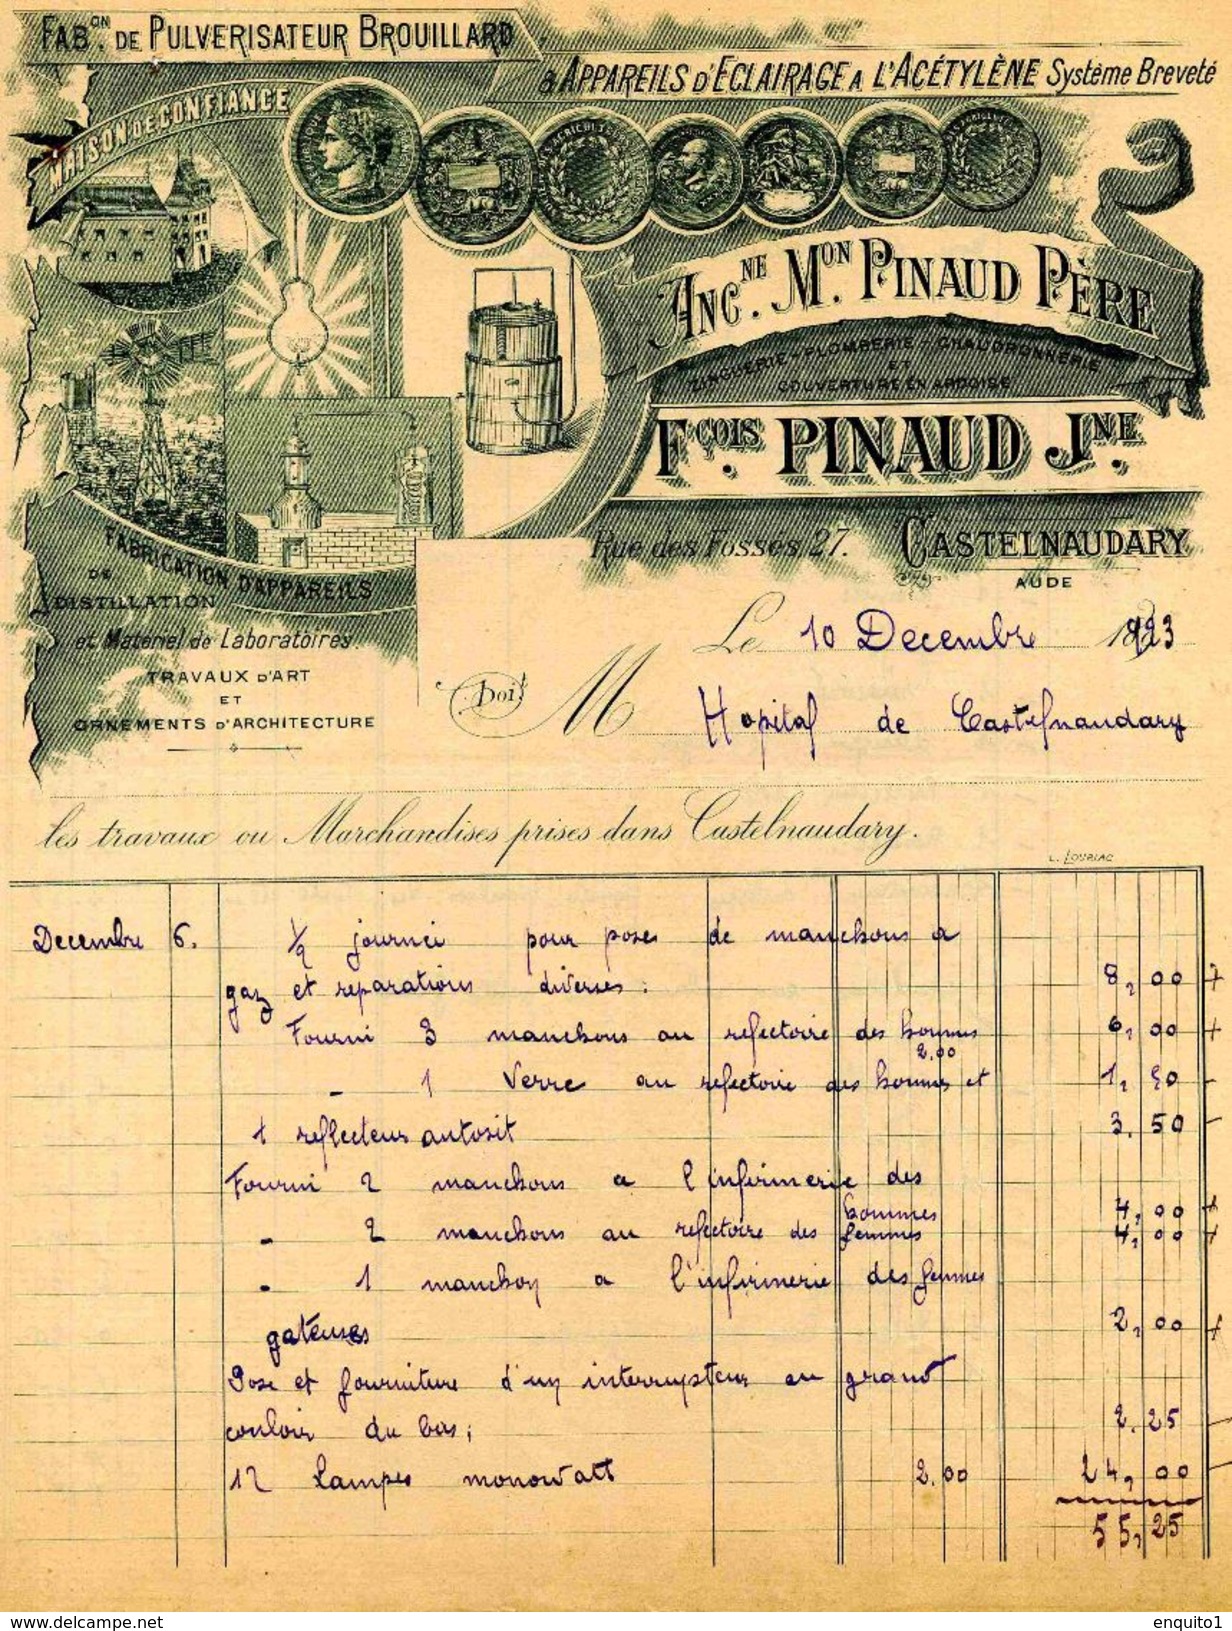 FABON. DE PULVERISATEUR BROUILLARD
& APPAREILS D'ECLAIRAGE A L'ACÉTYLÈNE Système Breveté
MAISON DE CONFIANCE
ANCNE. MON. PINAUD PÈRE
ZINGUERIE - PLOMBERIE - CHAUDRONNERIE
ET
COUVERTURE EN ARDOISE
FÇOIS. PINAUD JNE.
Rue des Fosses, 27. CASTELNAUDARY
AUDE
FABRICATION D'APPAREILS
DE
DISTILLATION
et Matériel de Laboratoires.
TRAVAUX D'ART
ET
ORNEMENTS D'ARCHITECTURE
Le 10 Decembre 1923
Doit M Hopital de Castelnaudary
les travaux ou Marchandises prises dans Castelnaudary.
L. LOURIAC
Decembre 6. 1/2 journeé pour poses de manchons a
gaz et reparations diverses: 8,00
Fourni 3 manchons au refectoire des hommes 6,00
2.00
- 1 Verre au refectoire des hommes et 1,50
1 reflecteur autosit 3.50
Fourni 2 manchons a l'infirmerie des
hommes 4,00
- 2 manchons au refectoire des femmes 4,00
- 1 manchon a l'infirmerie des femmes
gateuses 2,00
Pose et fourniture d'un interrupteur au grand
couloir du bas; 2.25
12 Lampes monowatt 2.00 24,00
55,25
delcampe.net
enquito1